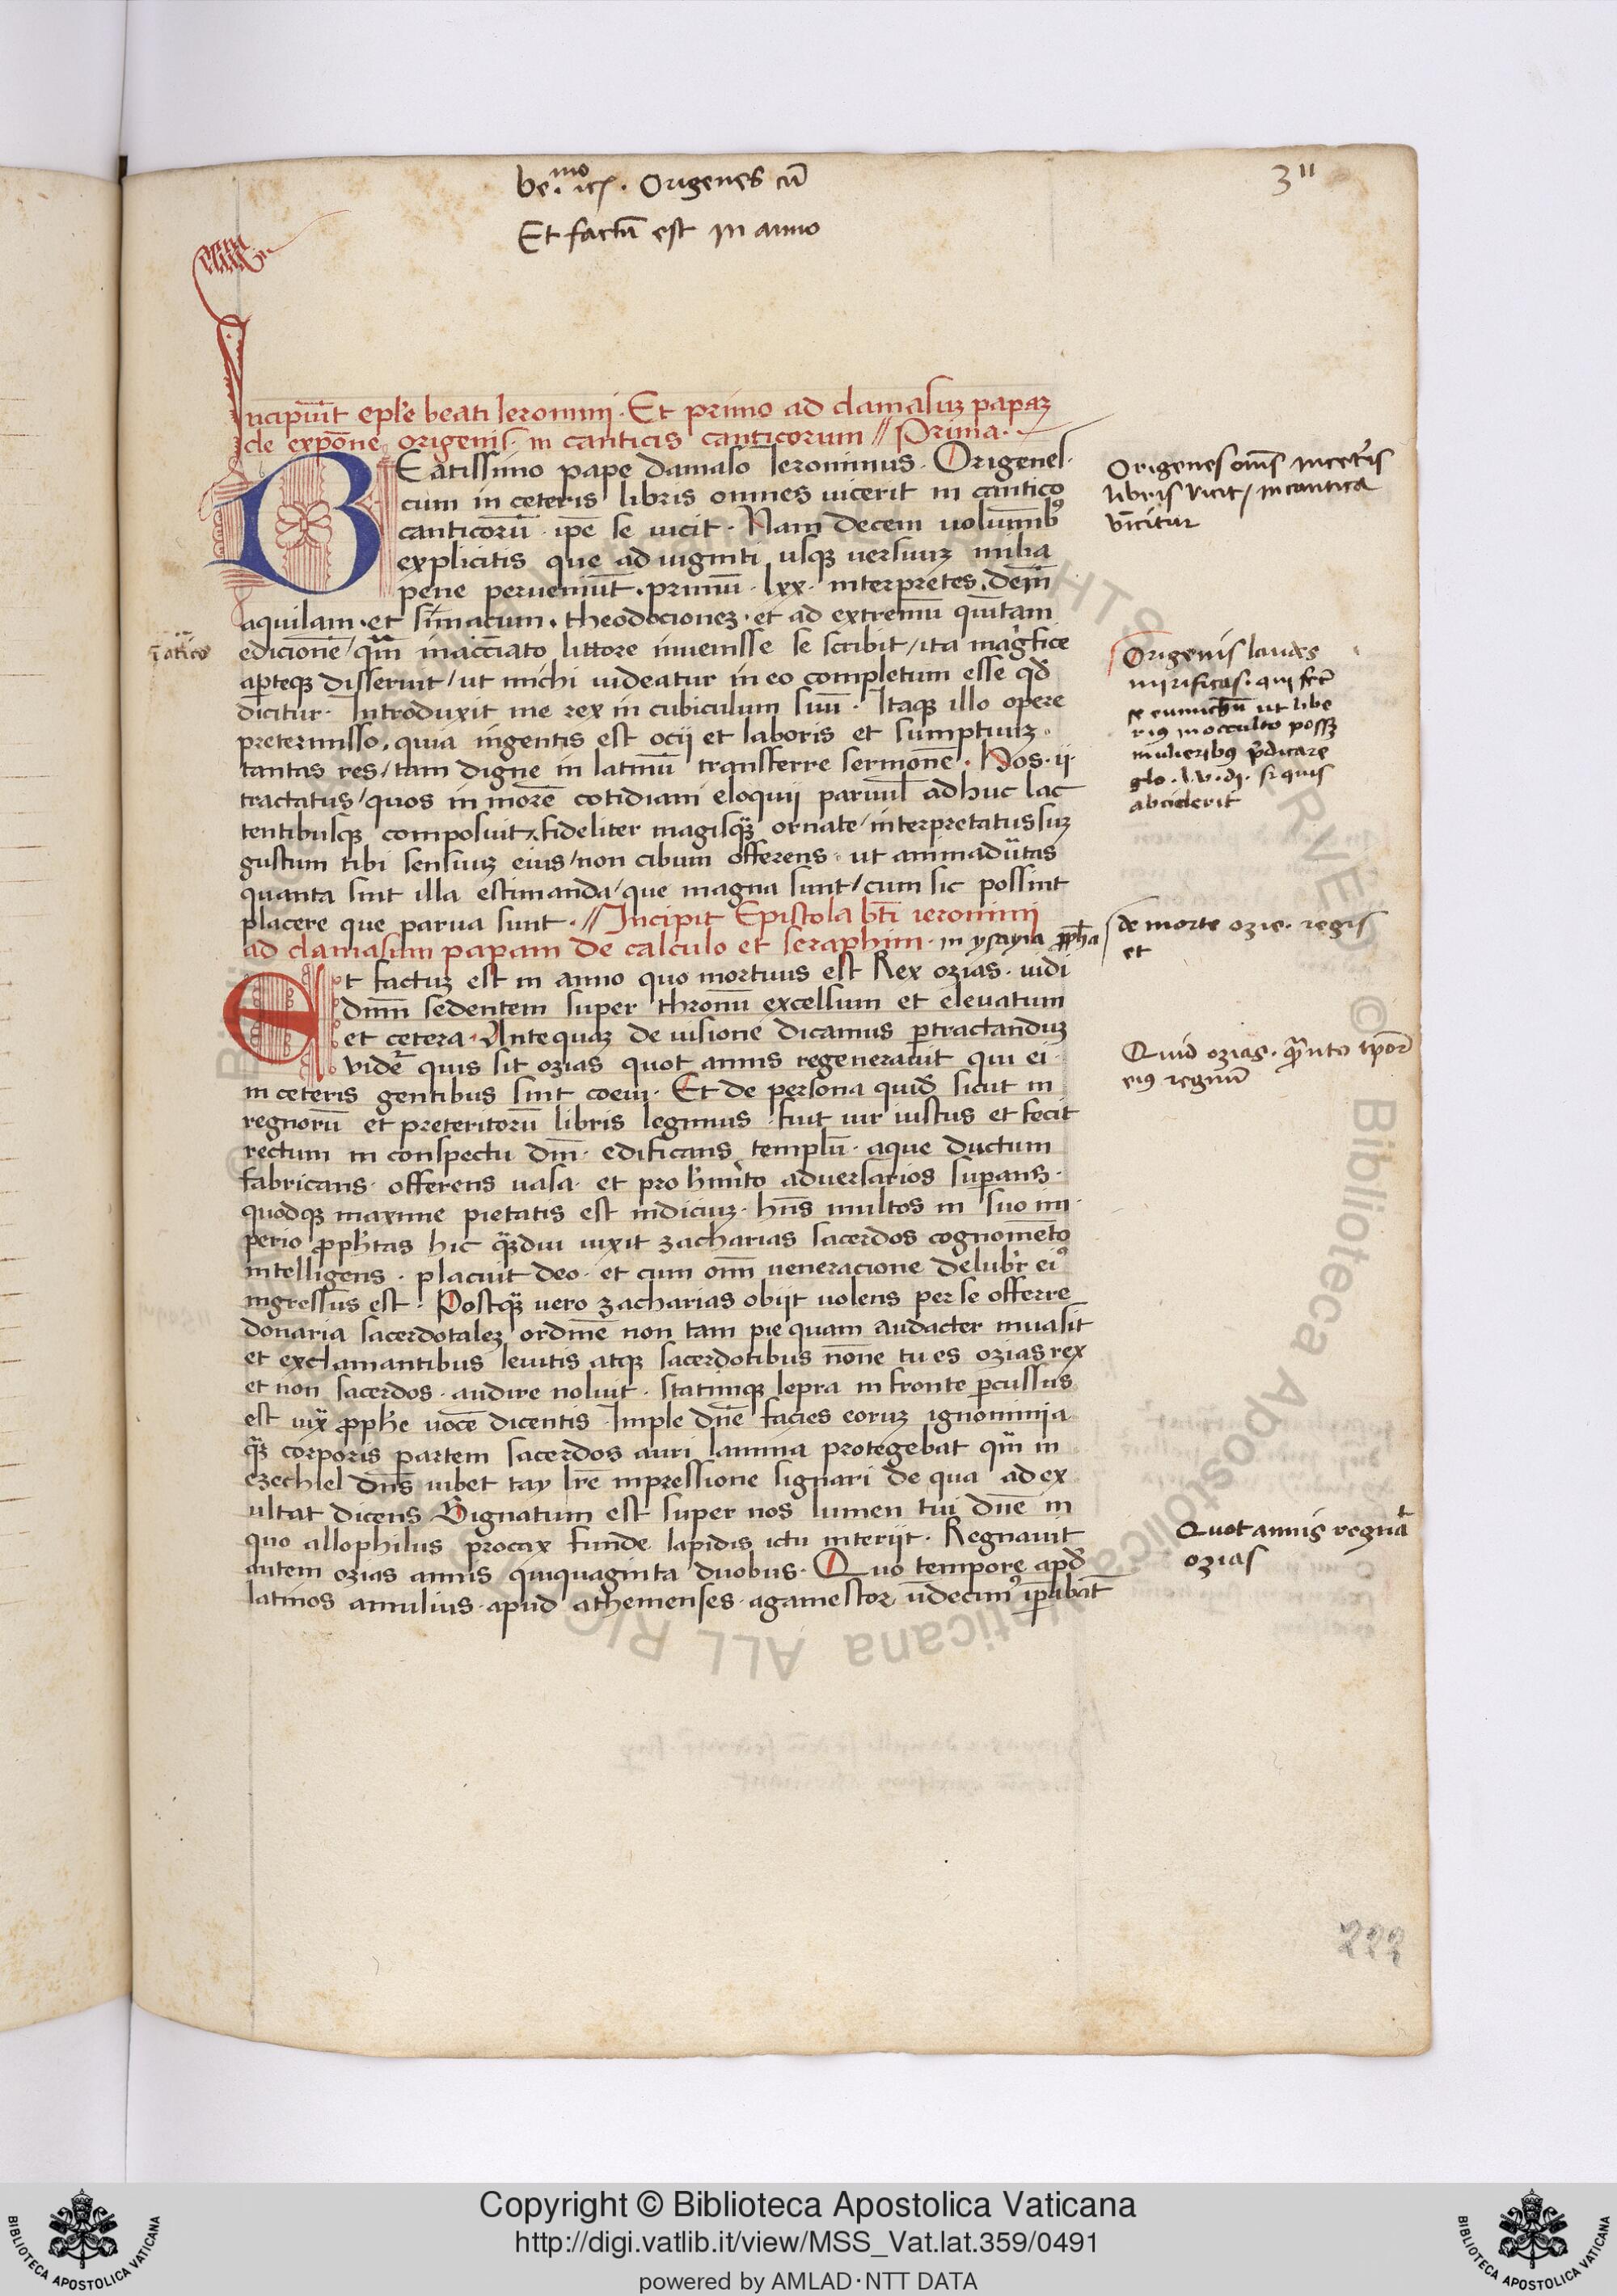 be.mo ier. Origenes cū
3ıı
Et factū est in anno
Incipiu̅t eple̅ beati Ieronimi. Et primo ad damasuʒ papaʒ
de expo̅ne origenis in canticis canticorum // Prima.
BEatissimo pape damaso Ieronimus. Origenes
cum in ceteris libris omnes uicerit in cantico
canticoru̅ ip̅e se uicit. Nam decem uolumi̅bꝰ
explicitis que ad uiginti usqꝫ uersuuʒ milia
pene perueniu̅t. primu̅ lxx. interpretes. dein̅
aquilam. et simacum. theodocioneʒ. et ad extremu̅ quintam
edicione̅ / qua̅ in acciato littore inuenisse se scribit / ita magͥfice
aperteqꝫ disseruit / ut michi uideatur in eo completum esse qd̅
dicitur. Introduxit me rex in cubiculum suu̅. Itaqꝫ illo opere
pretermisso. quia ingentis est ocij et laboris et sumptuuʒ
tantas res / tam digne in latinu̅ transferre sermone̅. Nos. ij.
tractatus / quos in more̅ cotidiani eloquij paruul̅ adhuc lac
tentibusqꝫ composuit / fideliter magisqꝫ̅ ornate / interpretatus suʒ
gustum tibi sensuuʒ eius / non cibum offerens. ut animadu̅tas
quanta sint illa estimanda / que magna sunt / cum sic possint
placere que parua sunt. // Incipit Epistola bt̅i ieronimi
ad damasum papam de calculo et seraphim. in ysayia ꝓph̅a
Et factuʒ est in anno quo mortuus est Rex ozias. uidi
dn̅m sedentem super thronu̅ excelsum et eleuatum
et cetera. Antequaʒ de uisione dicamus ꝑtractanduʒ
vider̅ quis sit ozias quot annis regenerauit qui ei
in ceteris gentibus sint coeui. Et de persona quid̅ sicut in
regnoru̅ et preteritoru̅ libris legimus. fuit uir iustus et fecit
rectum in conspectu dn̅i. edificans templu̅. aque ductum
fabricans. offerens uasa. et pro hͥmͥto aduersarios suꝑans.
quodqꝫ maxime pietatis est indiciuʒ. hn̅s multos in suo im
perio ꝓph̅tas hic qꝫ̅diu uixit zacharias sacerdos cognome̅to
intelligens. placuit deo. et cum om̅i ueneracione delubr̅ eiꝰ
ingressus est. Postqꝫ̅ uero zacharias obijt uolens per se offerre
donaria sacerdotaleʒ ordine̅ non tam pie quam audacter inuasit
et exclamantibus leuitis atqꝫ sacerdotibus no̅ne tu es ozias rex
et non sacerdos. audire noluit. statimqꝫ lepra in fronte ꝑcussus
est iux̅ ꝓph̅e uoce̅ dicentis. Imple dn̅e facies eoruʒ ignominia
qꝫ̅ corporis partem sacerdos auri lamina protegebat qua̅ in
ezechiel dn̅s iubet tay lr̅e inpressione signari de qua ad ex
ultat dicens Signatum est super nos lumen tui dn̅e in
quo allophilus procax funde lapidis ictu interijt. Regnauit
autem ozias annis quiquaginta duobus. Quo tempore apd̅
latinos amulius. apud athenienses. agamestor. u̅decimꝰ ip̅abat̅
Origenes om̅s in cet̕is
libris vicit / in cantica
vi̅citur
Origenis laudes
mirificas. qui fec̅
se eunuchu̅ ut libe
riꝰ in occulto possꝫ
mulieribꝰ p̅dicare
glo. l.v. di. si quis
absciderit
de morte ozie. regis
et
Quid ozias. qua̅nto tp̅or̅
eiꝰ regnu̅
Quot annis regnat̅
ozias
222
Copyright © Biblioteca Apostolica Vaticana
http://digi.vatlib.it/view/MSS_Vat.lat.359/0491
powered by AMLAD·NTT DATA
BIBLIOTECA APOSTOLICA VATICANA
BIBLIOTECA APOSTOLICA VATICANA